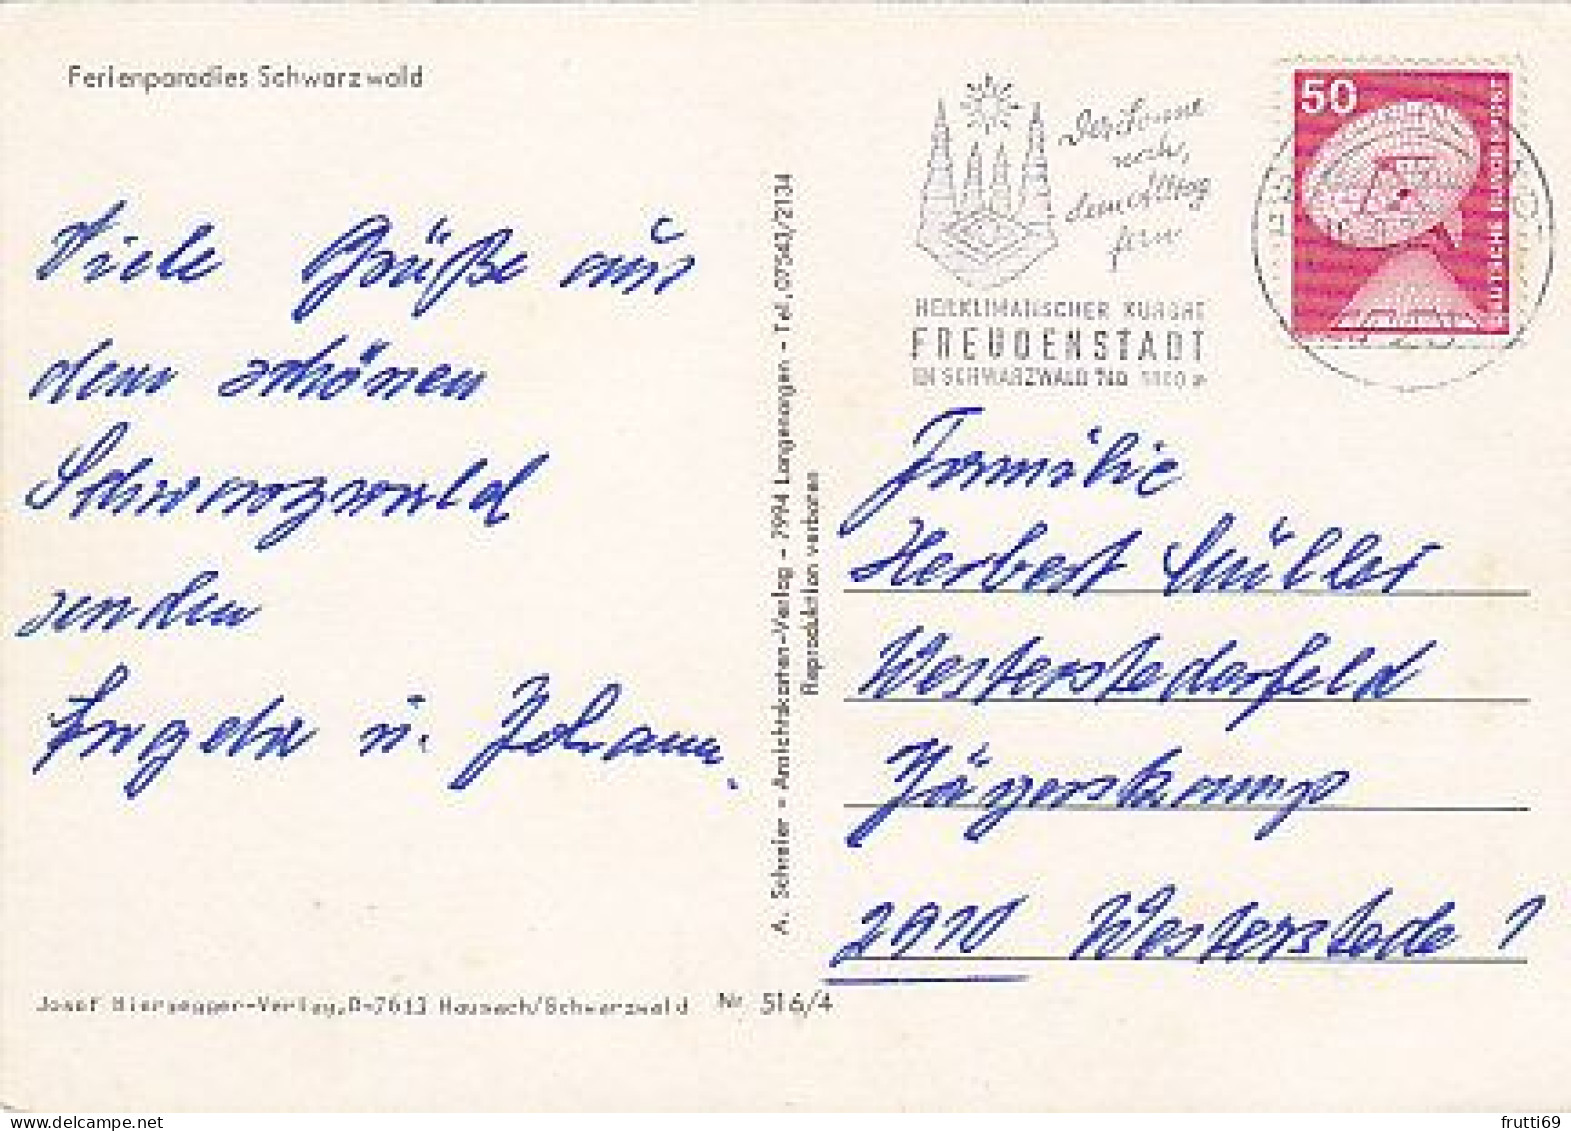 Ferienparadies Schwarzwald
Viele Grüße aus
dem schönen
Schwarzwald
senden
Ingela u. Johann.
A. Schreier - Ansichtskarten-Verlag - 7994 Langenargen - Tel. 07543/2134
Reproduktion verboten
Josef Biersegger-Verlag, D-7613 Hausach/Schwarzwald Nr. 516/4
Der Sonne
nah,
dem Alltag
fern
HEILKLIMATISCHER KURORT
FREUDENSTADT
IM SCHWARZWALD 740
50
DEUTSCHE BUNDESPOST
Familie
Herbert Müller
Westerstederfeld
Jägerskamp
2910 Westerstede 1
frutti69